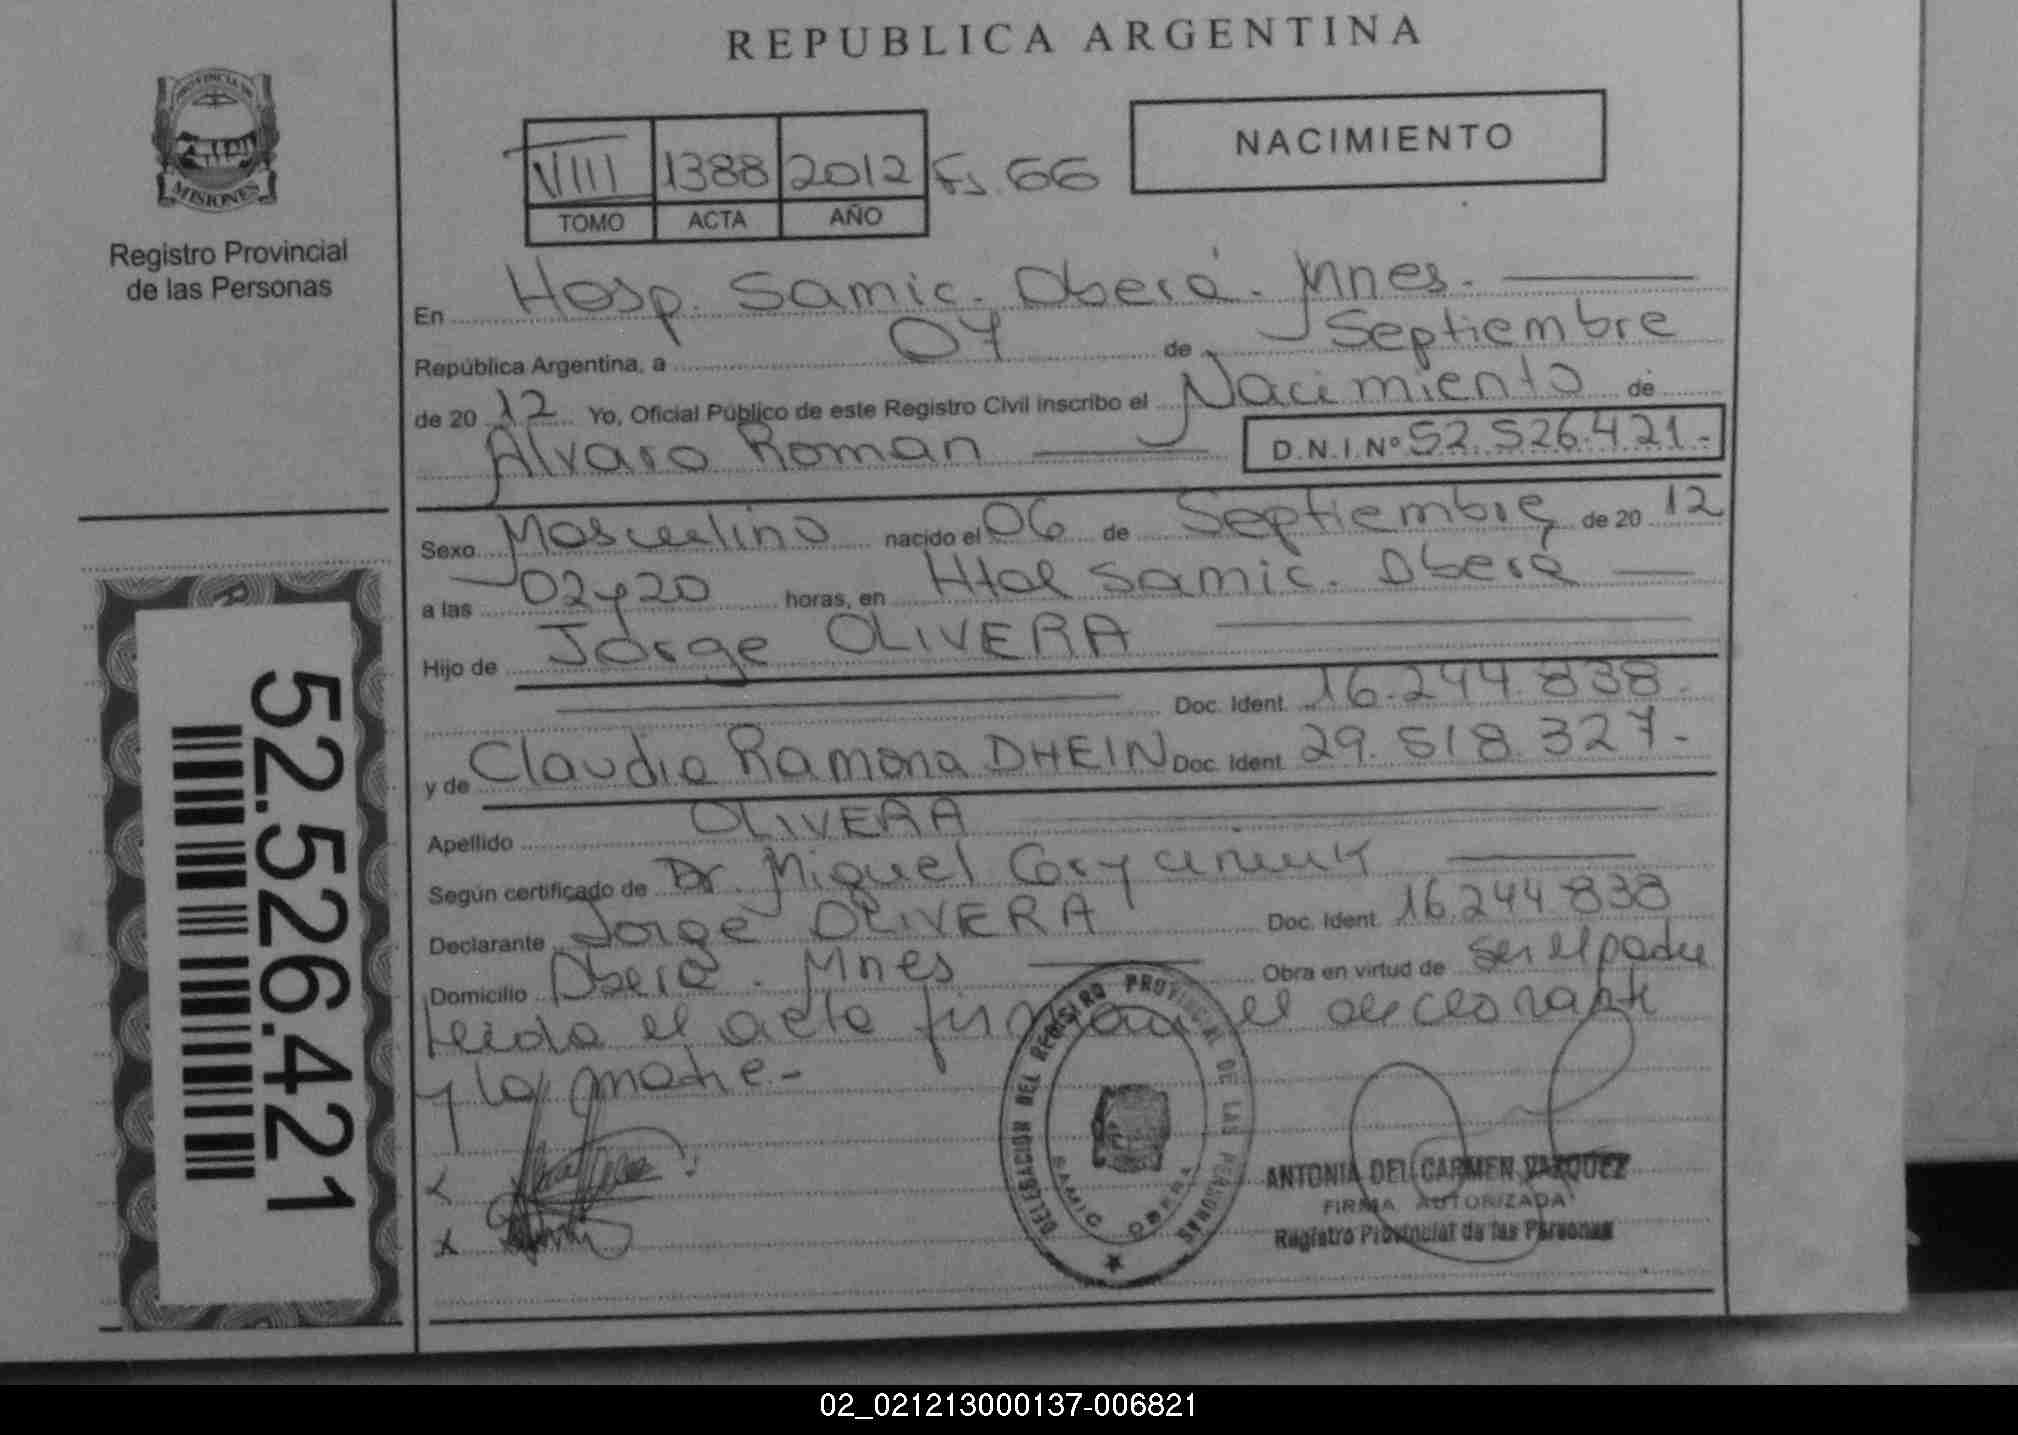 REPUBLICA ARGENTINA
PROVINCIA DE
MISIONES
Registro Provincial
de las Personas
NACIMIENTO
VIII 1388 2012 Fs. 66
TOMO ACTA AÑO
En Hosp. Samic. Oberá. Mnes.
República Argentina, a 07 de Septiembre
de 2012 Yo, Oficial Público de este Registro Civil inscribo el Nacimiento de
Alvaro Roman D.N.I. Nº 52.526.421.-
Sexo Masculino nacido el 06 de Septiembre de 2012
a las 02y20 horas, en Htal Samic. Oberá
Hijo de Jorge OLIVERA
Doc. Ident. 16.244.838.
y de Claudia Ramona DHEIN Doc. Ident. 29.518.327.-
Apellido OLIVERA
Según certificado de Dr. Miguel
Declarante Jorge OLIVERA Doc. Ident. 16.244.838
Domicilio Oberá. Mnes Obra en virtud de ser el padre
Leida el acta firman el declarante
y la madre.-
x
x
DELEGACION DEL REGISTRO PROVINCIAL DE LAS PERSONAS
SAMIC OBERA
ANTONIA DEL CARMEN VAZQUEZ
FIRMA AUTORIZADA
Registro Provincial de las Personas
52.526.421
02_021213000137-006821